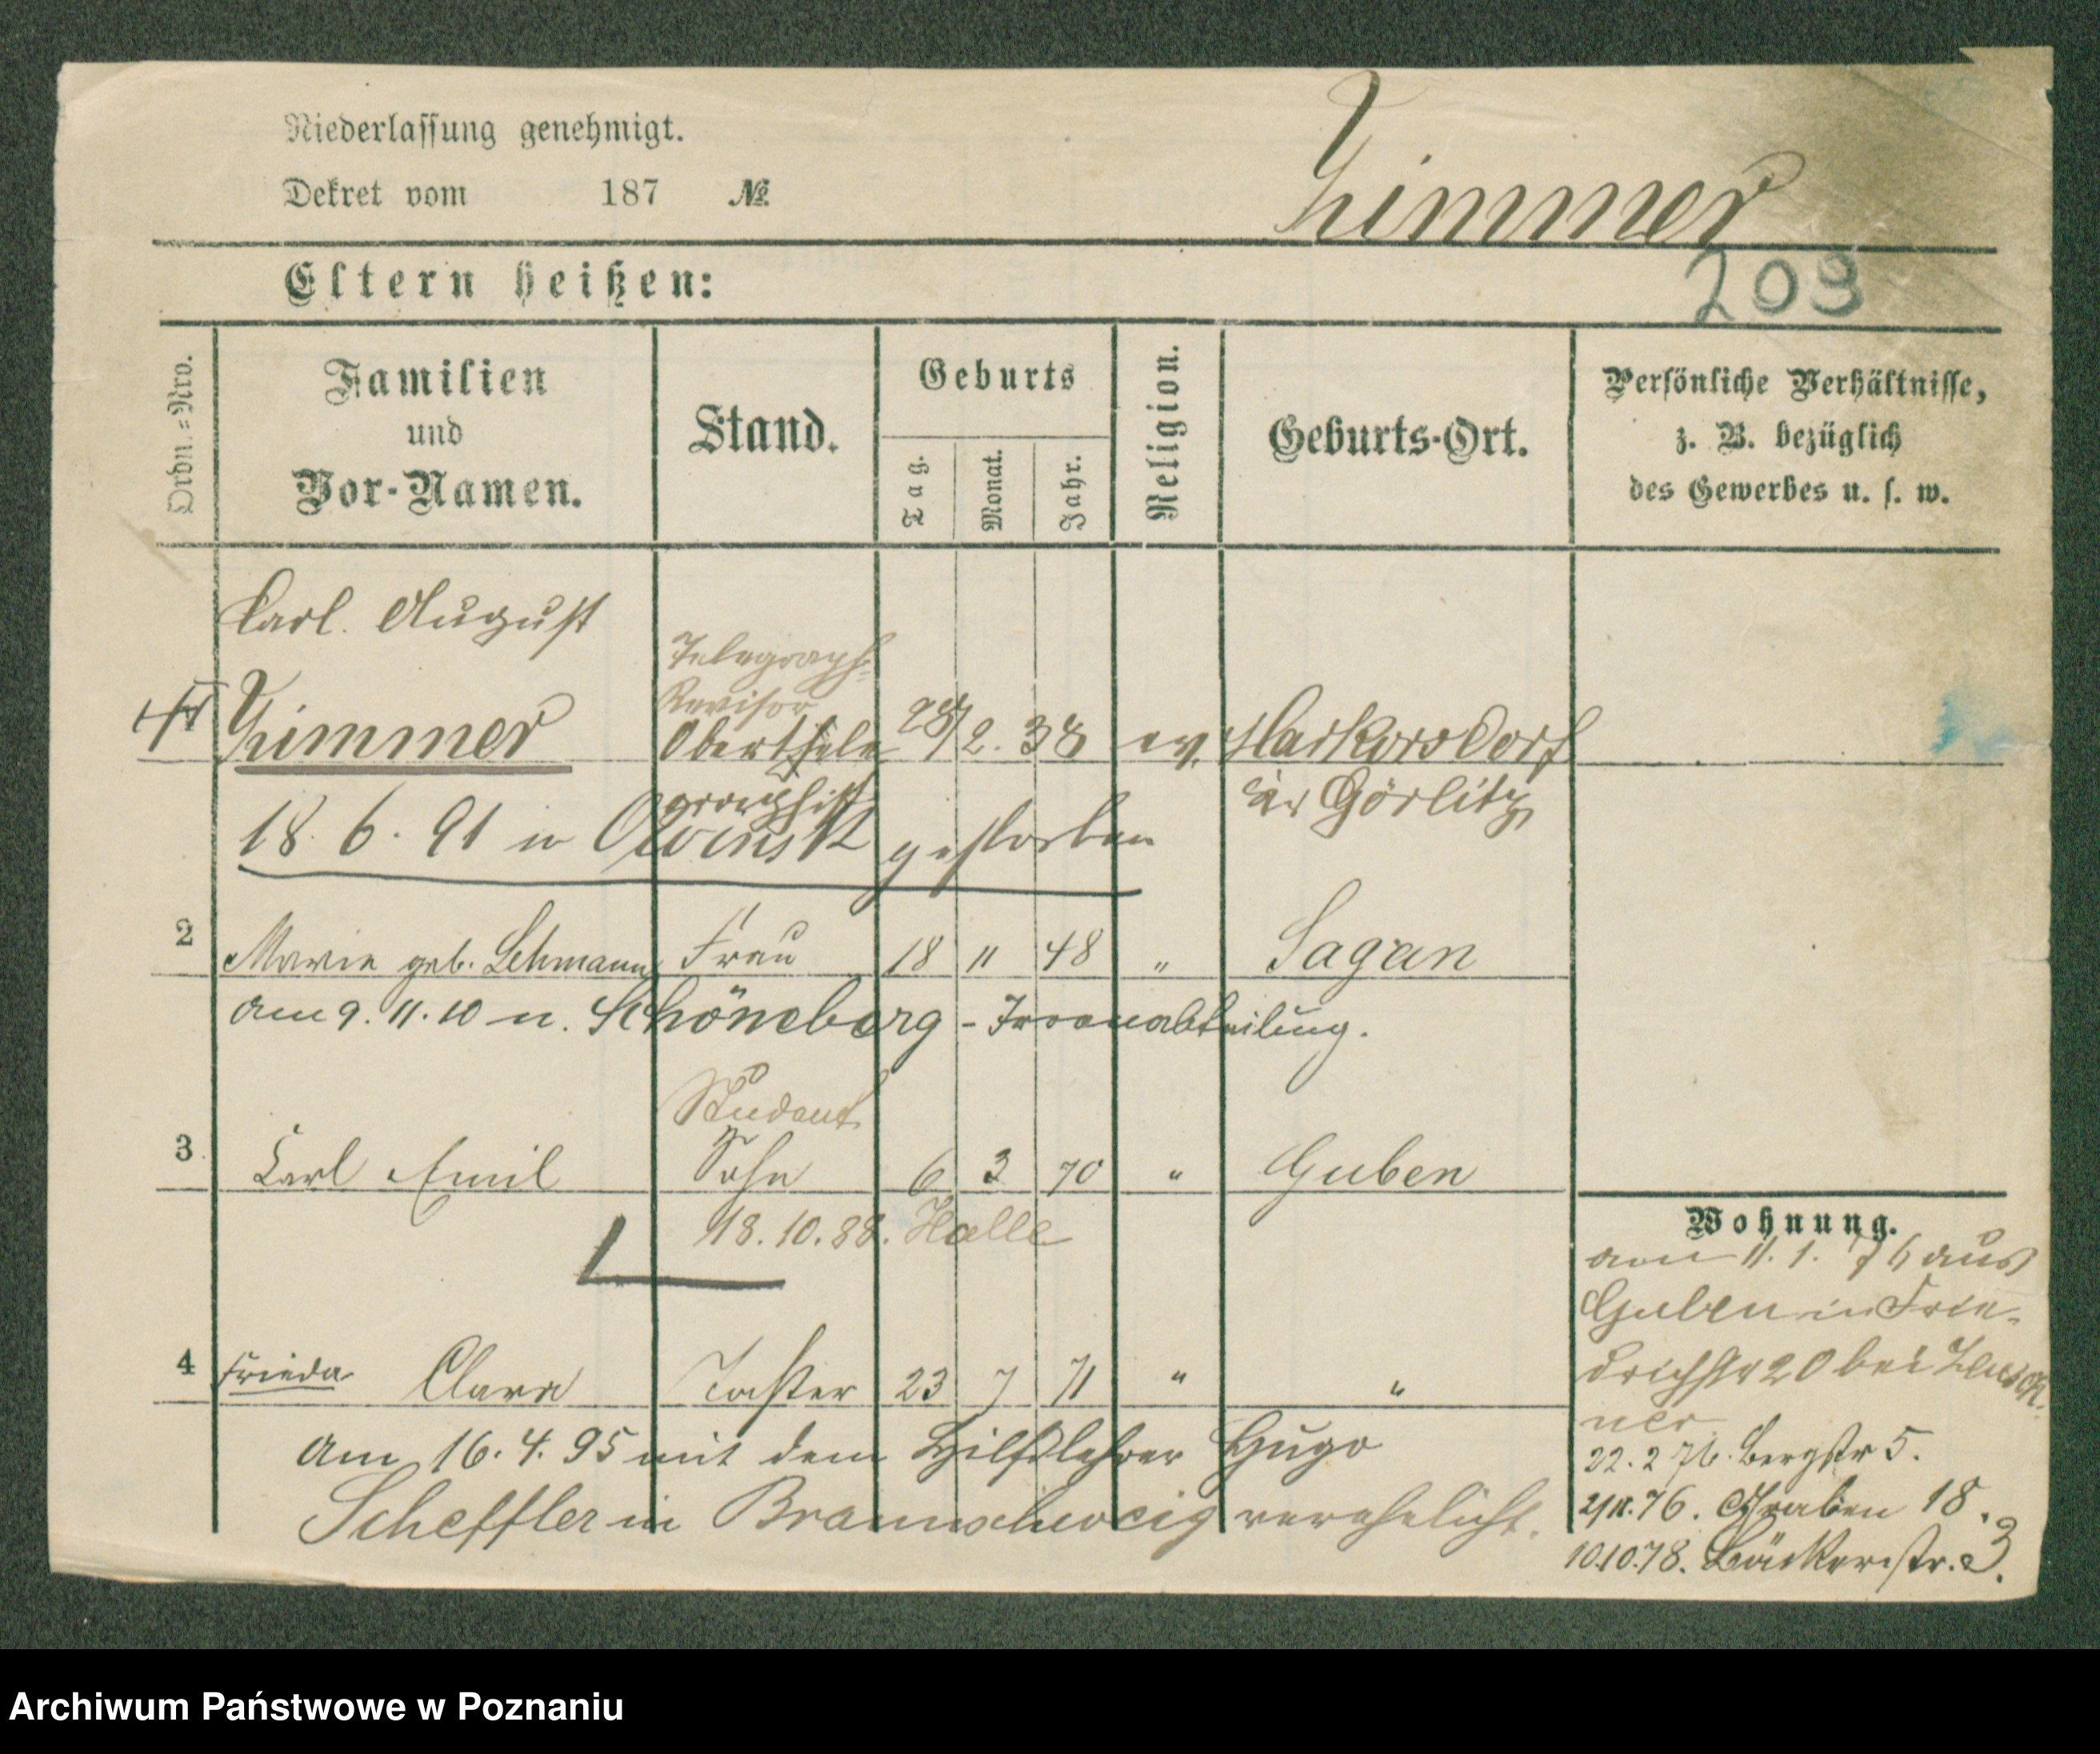 Niederlassung genehmigt.
Dekret vom 187 №
Zimmer
203
Eltern heißen:
Ordn.=Nro.
Familien
und
Vor-Namen.
Stand.
Geburts
Tag.
Monat.
Jahr.
Religion.
Geburts-Ort.
Persönliche Verhältnisse,
z. B. bezüglich
des Gewerbes u. s. w.
Carl. August
Telegraph.
Revisor
Zimmer Obertele 28/2. 38 ev. Markersdorf
graphist Kr Görlitz
18. 6. 91 in Owinsk gestorben
2 Marie geb. Lehmann Frau 18 " 48 " Sagan
am 9. 11. 10 n. Schöneberg - Irrenabteilung.
Student
3 Carl Emil Sohn 6 3 70 " Guben
18. 10. 88. Halle
4 Frieda Clara Tochter 23 7 71 " "
Am 16. 4. 95 mit dem Hilfslehrer Hugo
Scheffler in Braunschweig verehelicht.
Wohnung.
am 11. 1. 76 aus
Guben in Frie-
drichstr 20 bei
ner
22. 2 76. Bergstr 5.
76. Graben 18.
10.10.78. Bäckerstr. 3.
Archiwum Państwowe w Poznaniu